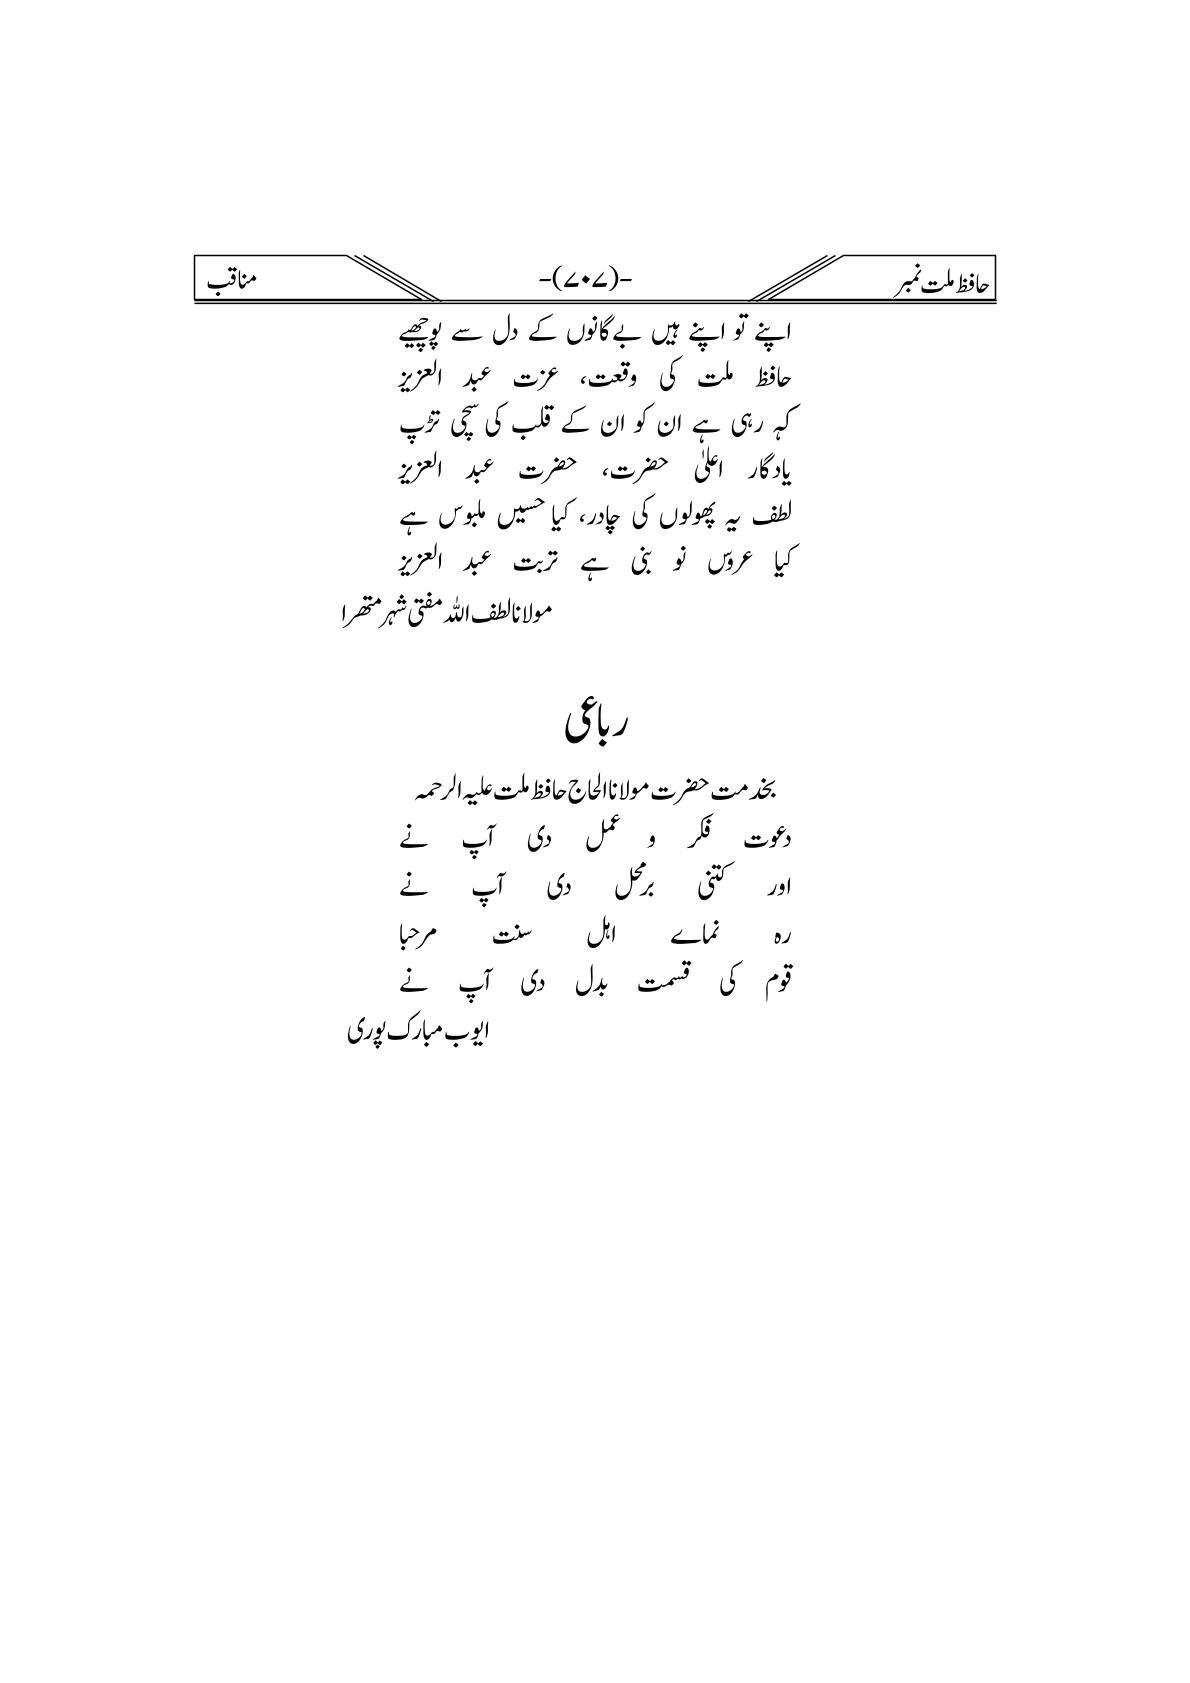 حافظ ملت نمبر -(۷۰۷)- مناقب
اپنے تو اپنے ہیں بےگانوں کے دل سے پوچھیے
حافظ ملت کی وقعت، عزت عبد العزیز
کہہ رہی ہے ان کو ان کے قلب کی سچی تڑپ
یادگار اعلیٰ حضرت، حضرت عبد العزیز
لطف یہ پھولوں کی چادر، کیا حسیں ملبوس ہے
کیا عروس نو بنی ہے تربت عبد العزیز
مولانا لطف اللہ مفتی شہر متھرا
رباعی
بخدمت حضرت مولانا الحاج حافظ ملت علیہ الرحمہ
دعوت فکر و عمل دی آپ نے
اور کتنی برمحل دی آپ نے
رہ نماے اہل سنت مرحبا
قوم کی قسمت بدل دی آپ نے
ایوب مبارک پوری